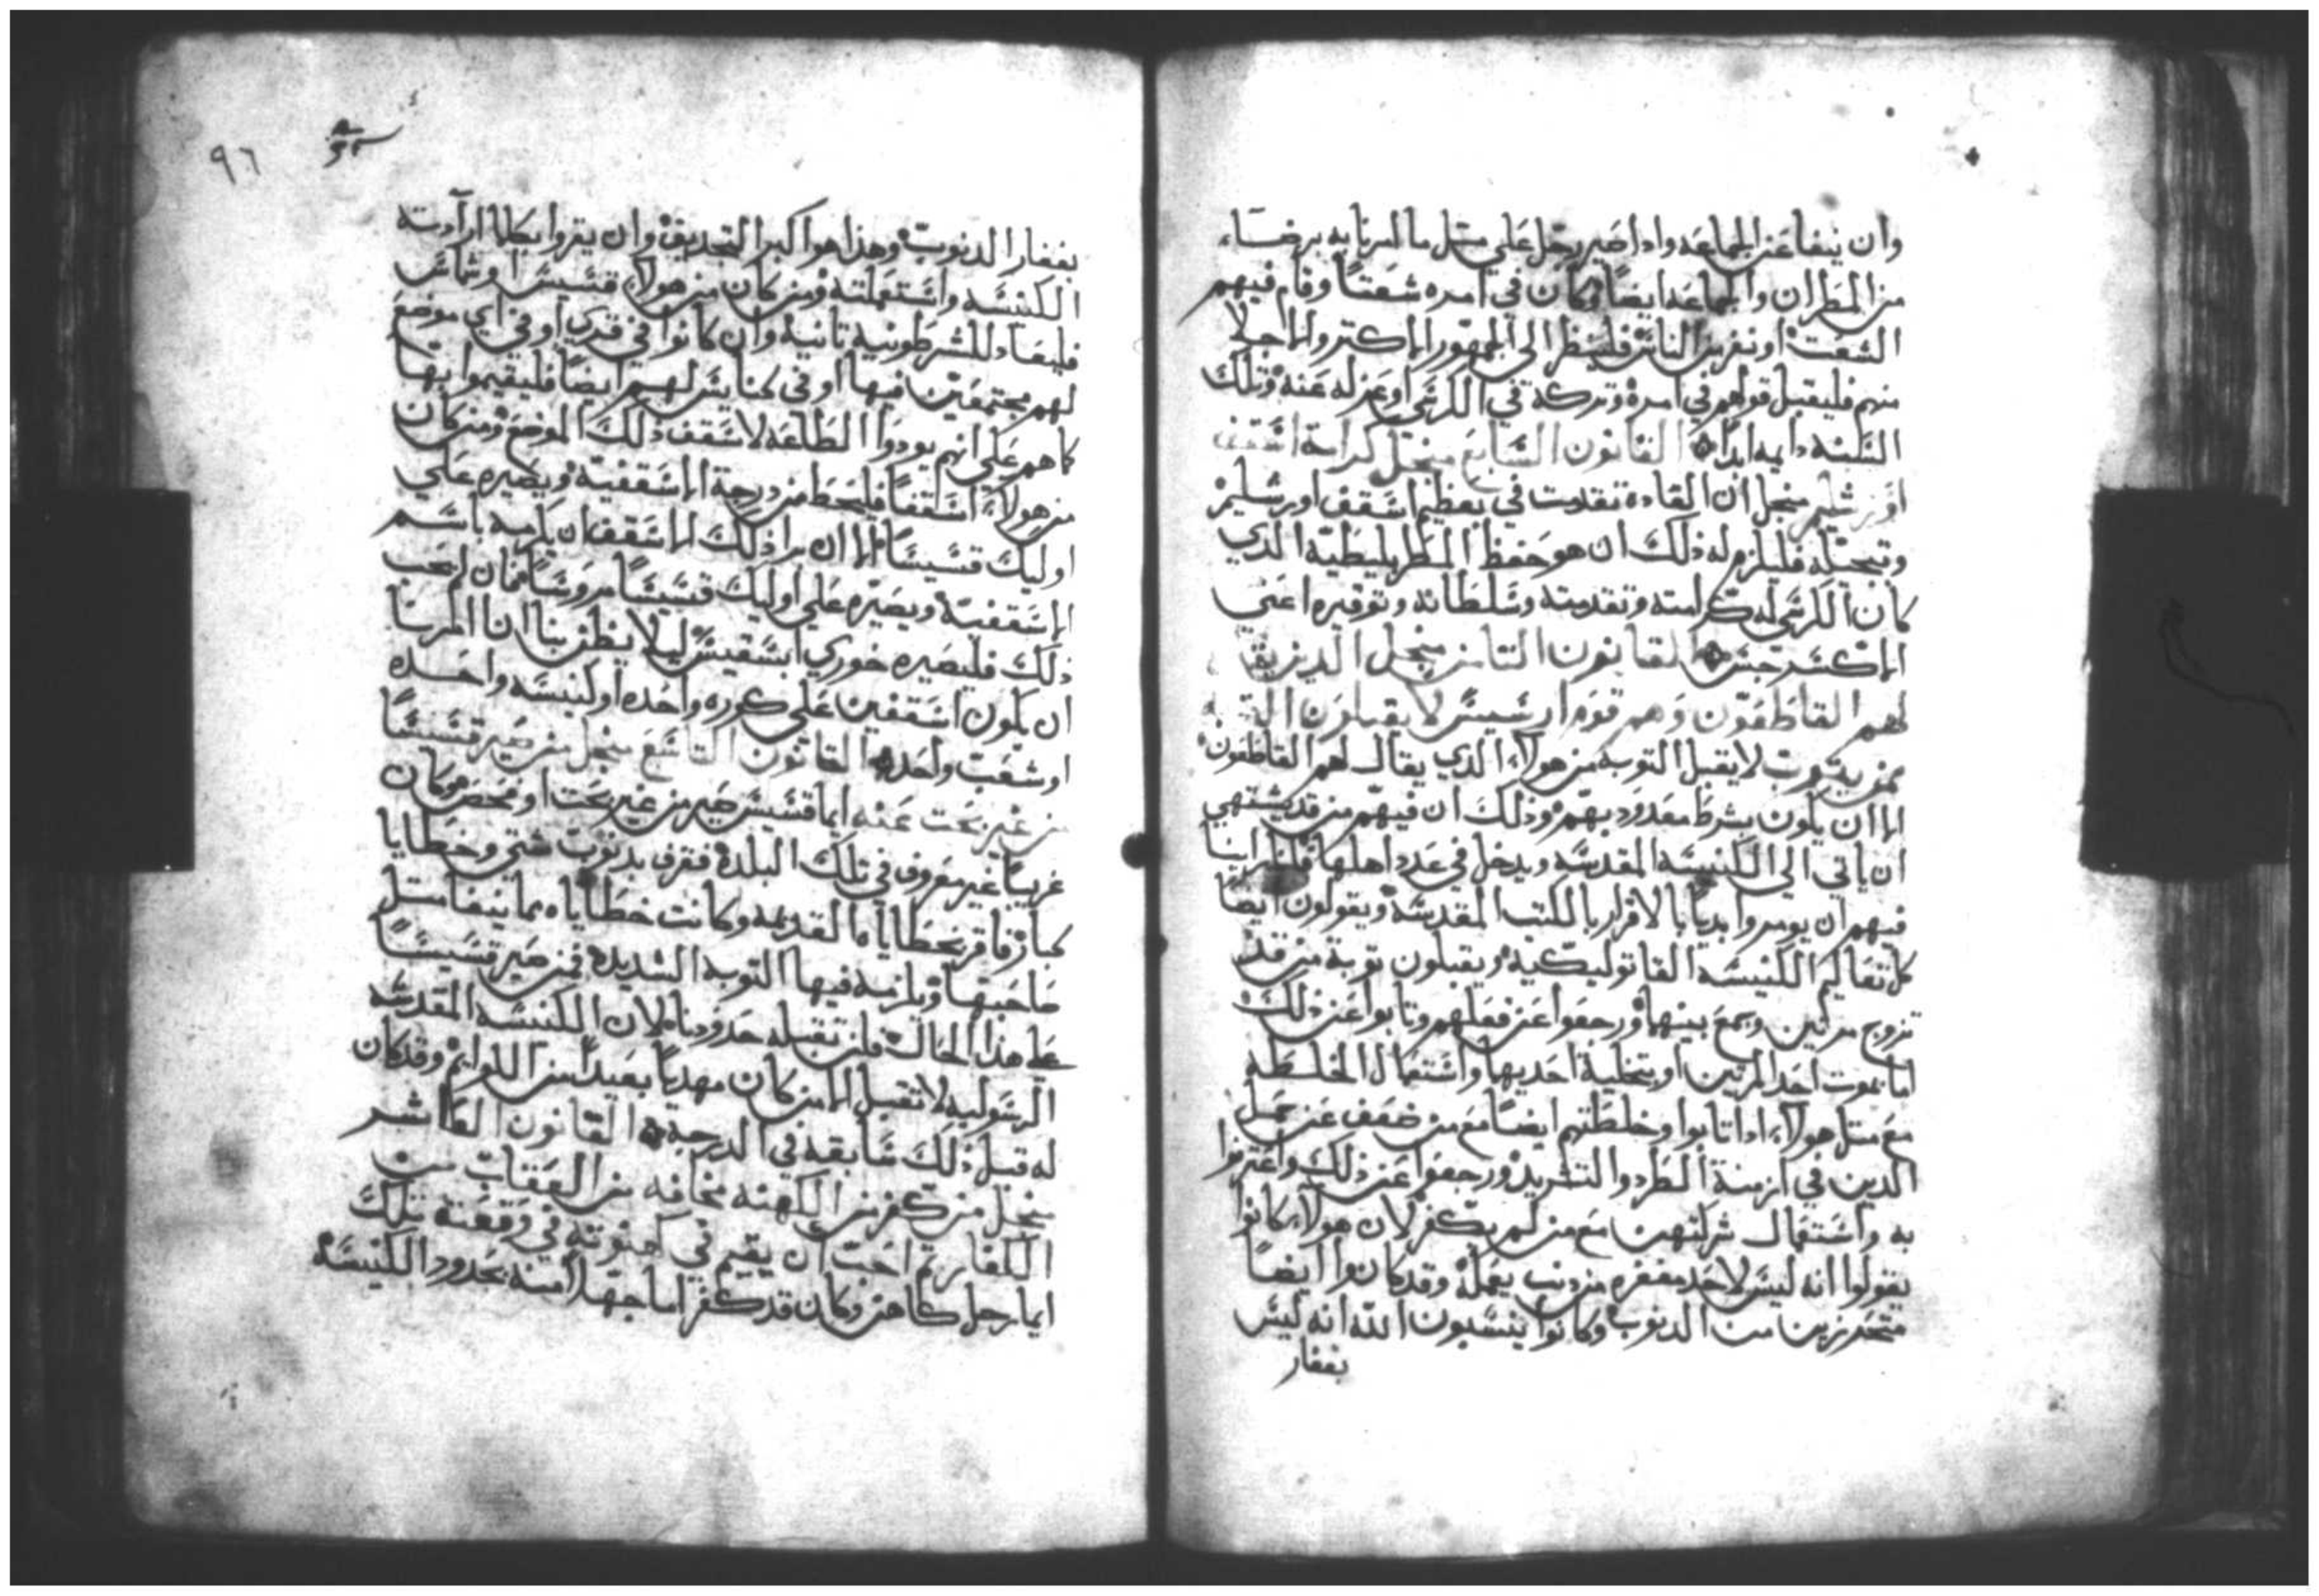 وان ينفا عن الجماعه واداصير رجل علي متل ما امرنا به برضاء
من المطران والجماعه ايضاً وكان في امره شعتاً وقام فيهم
الشعت او نفر من الناس فلينظر الي الجمهور الاكتر والاجلا
منهم فليقبل قولهم في امره وتركه في الكرسي او عزله عنه وتلك
السنه دايمه ابداً القانون السابع منجل كرامة اسقف
اورشليم منجل ان العاده تقدمت في تعظيم اسقف اورشليم
وتبجيله فليلزم له ذلك ان هو حفظ المطربليطيه الدي
كان الكرسي له كرامته وتقدمته وسلطانه وتوقيره اعني
الاكسرخس القانون التامن منجل الدين يقال
لهم القاطفون وهم قوم اراسيس لا يقبلون التوبه
ممن يتوب لا يقبل التوبه من هولاء الدي يقال لهم القاطفون
الا ان يكون بشرط معدود بهم ودلك ان فيهم من قد يشتهي
ان ياتي الي الكنيسه المقدسه ويدخل في عدد اهلها فلقد راينا
فيهم ان يومروا بدياً بالاقرار بالكتب المقدسه ويقولون ايضاً
كل تعاليم الكنيسه القاتوليكيه ويقبلون توبة من قد
تزوج مرتين وجمع بينهما ورجعوا عن فعلهم وتابوا عن ذلك
اما بموت احد المرتين او بتخلية احديها واستعمال الخلطه
مع متل هولاء اداتابوا وخلطتهم ايضاً مع من ضعف عن حمل
الدين في ازمنة الطرد والتشريد ورجعوا عن ذلك واعترفوا
به واستعمال شركتهن مع من لم يكفر لان هولاء كانوا
يقولوا انه ليس لاحد مغفره من دنب يعمله وقد كانوا ايضاً
متحرزين من الدنوب وكانوا ينسبون الله انه ليس
بغفار
٩٦
بغفار الدنوب وهذا هو اكبر التجديف وان يقروا بكلما ارادته
الكنيسه واستعملته ومن كان من هولاء قسيس او شماس
فليعاد للشرطونيه تانيه وان كانوا في قري او في اي موضع
لهم مجتمعين فيها او في كنايس لهم ايضاً فليقيموا بها
كما هم علي انهم يودوا الطاعه لاسقف ذلك الموضع ومن كان
من هولاء اسقفاً فليحط من درجة الاسقفيه ويصيره علي
اوليك قسيساً الا ان يرا ذلك الاسقف ان يكرمه باسم
الاسقفيه ويصيره علي اوليك قسيساً مروساً فان لم يحب
ذلك فليصيره خوري ابسقبس ليلا يظن بنا اننا امرنا
ان يكون اسقفين علي كوره واحده او كنيسه واحده
او شعب واحد القانون التاسع منجل من صير قسيساً
من غير بحت عنه ايما قسيس صير من غير بحت او فحص وكان
غريباً غير معروف في تلك البلده فقرف بدنوب شتي وخطايا
كبار فاقر بخطاياه القديمه وكانت خطاياه مما ينفا متل
صاحبها ويلزمه فيها التوبه الشديده فمن صير قسيساً
علي هذا الحال فلن تقبله حدودنا لان الكنيسه المقدسه
الرسوليه لا تقبل الا من كان مهدباً بعيداً من اللوايم وقد كان
له قبل ذلك سابقه في الدرجة القانون العاشر
منجل من كفر من الكهنه مخافه من العقاب من
الكفار تم احب ان يقيم في كهنوته في وقعته تلك
ايما رجل كاهن وكان قد كفر اما جهلاً منه بحدود الكنيسه